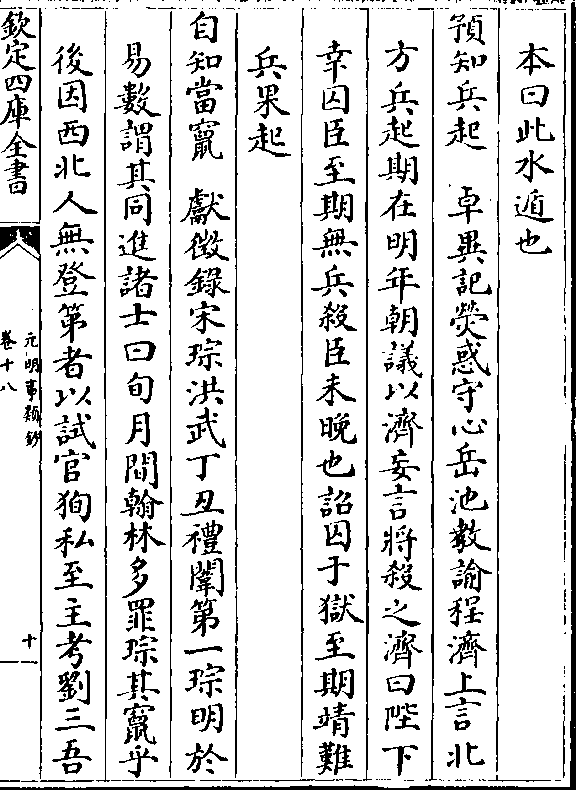 本曰此水遁也
預知兵起　卓異記熒惑守心岳池教諭程濟上言北
方兵起期在明年朝議以濟妄言將殺之濟曰陛下
幸囚臣至期無兵殺臣未晚也詔囚于獄至期靖難
兵果起
自知當竄　獻徵錄宋琮洪武丁丑禮闈第一琮明於
易數謂其同進諸士曰旬月間翰林多罪琮其竄乎
後因西北人無登第者以試官狥私至主考劉三吾
欽定四庫全書
元明事類鈔
卷十八
十